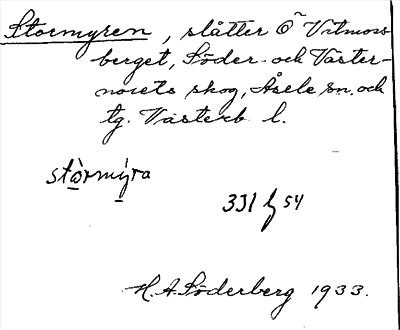 Stormyren, slåtter Ö Vitmoss-
berget, Söder- och Väster-
norets skog, Åsele sn. och
tg. Västerb. l.
stòrmýra
331 h 54
H. A. Söderberg 1933.